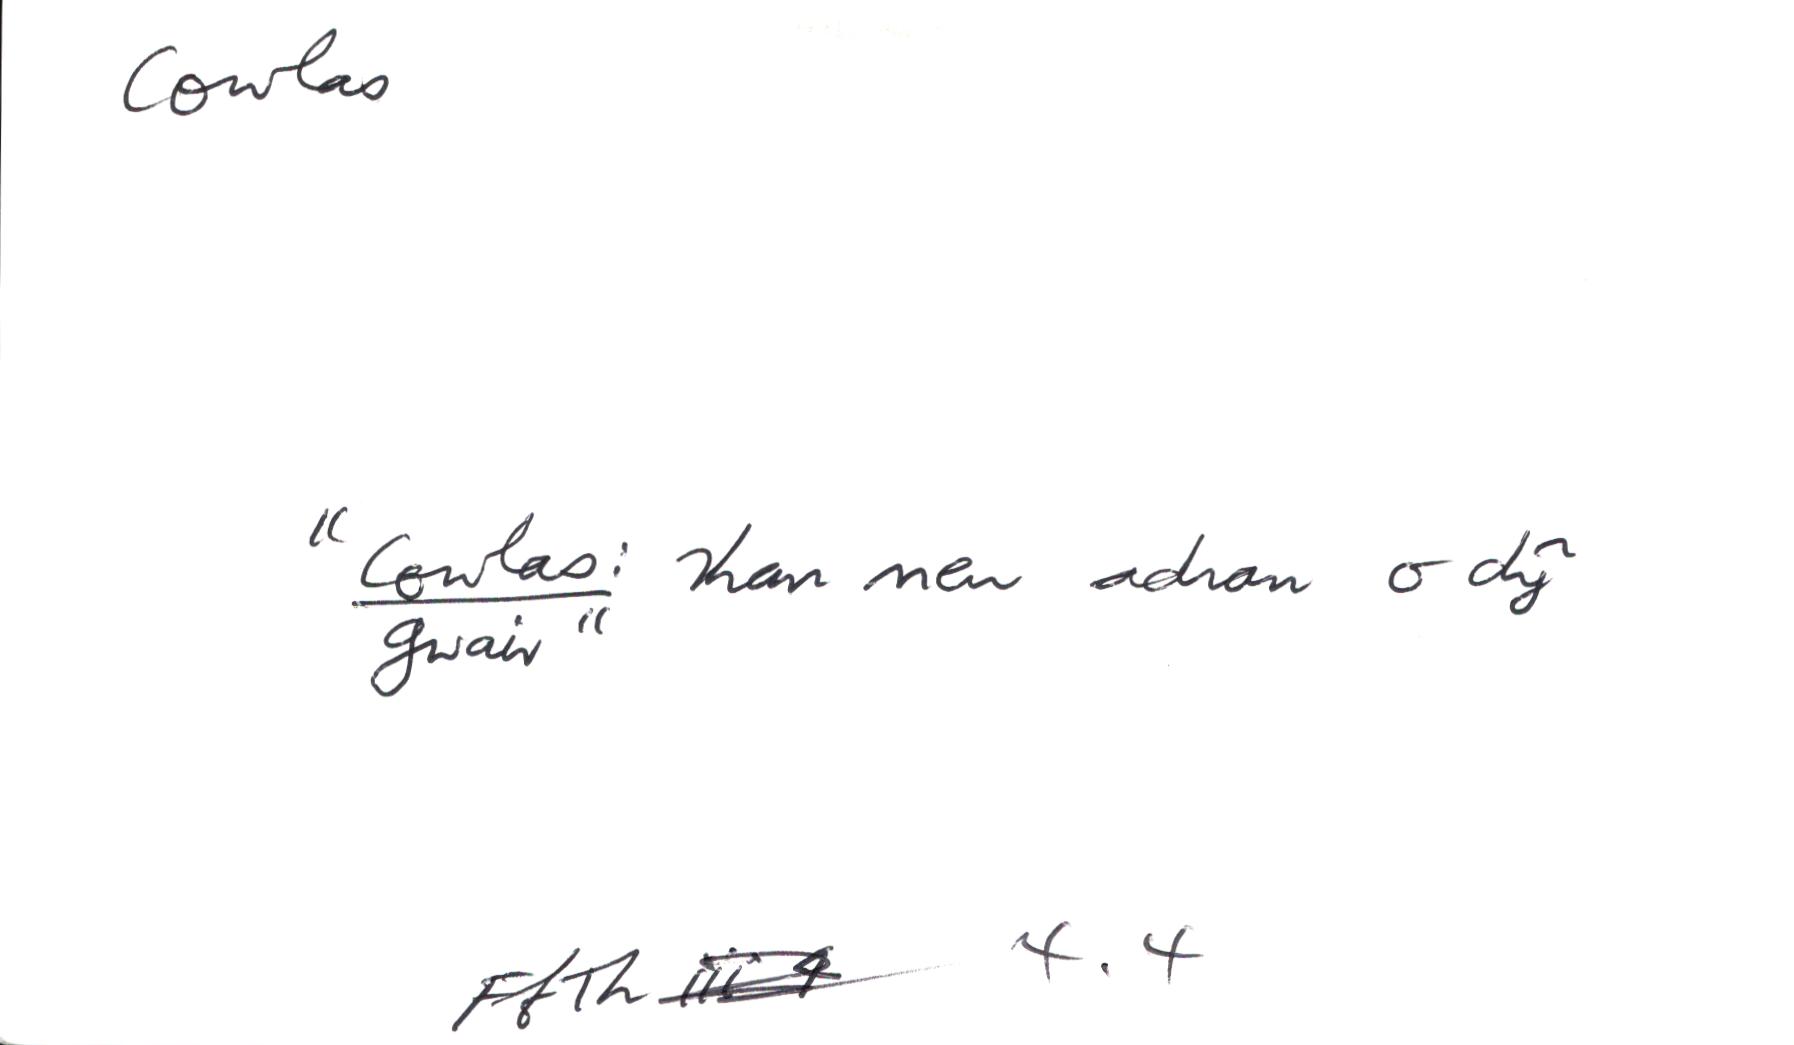 Cowlas
"Cowlas: rhan neu adran o dŷ
gwair"
FfTh 4.4